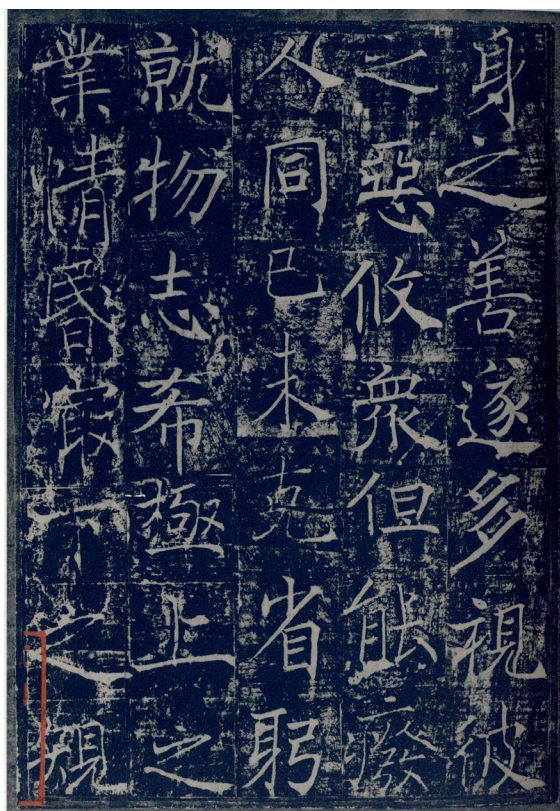 身之善遂多視彼
之惡攸衆但能癈
人同己未克省躬
就物志希極上之
業情昬㝡下之規